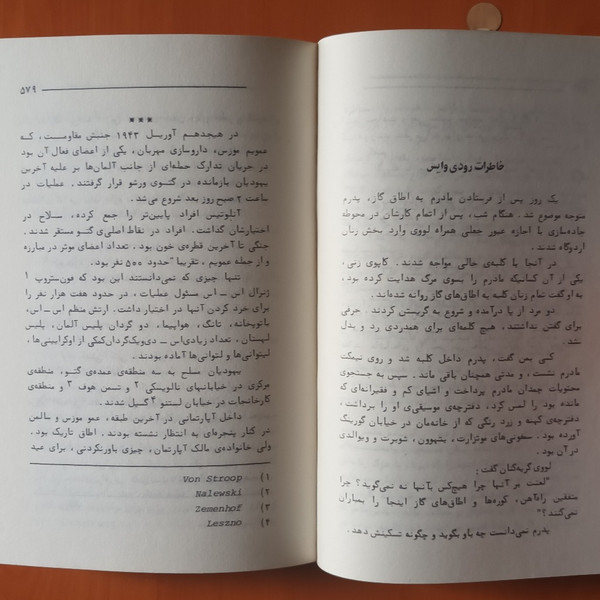 خاطرات رودی وایس
یک روز پس از فرستادن مادرم به اطاق گاز، پدرم
متوجه موضوع شد. هنگام شب، پس از اتمام کارشان در محوطه
جاده‌سازی با اجازه عبور جعلی همراه لووی وارد بخش زنان
اردوگاه شدند.
در آنجا با کلبه‌ی خالی مواجه شدند. کاپوی زنی،
یکی از آن کسانیکه مادرم را بسوی مرگ هدایت کرده بود،
به او گفت تمام زنان کلبه به اطاق‌های گاز روانه شده‌اند.
دو مرد از پا درآمده و شروع به گریستن کردند. حرفی
برای گفتن نداشتند. هیچ کلمه‌ای برای همدردی رد و بدل
نشد.
کسی بمن گفت، پدرم داخل کلبه شد و روی نیمکت
مادرم نشست، و مدتی همچنان باقی ماند. سپس به جستجوی
محتویات چمدان مادرم پرداخت و اشیای کم و فقیرانه‌ای که
مانده بود را لمس کرد، دفترچه‌ی موسیقی‌ی او را برداشت،
دفترچه‌ی کهنه و زرد رنگی که از خانه‌مان در خیابان گورینگ
آورده بود. سمفونی‌های موتزارت، بتهوون، شوبرت و ویوالدی
در آن بود.
لووی گریه‌کنان گفت:
"لعنت بر آنها چرا هیچکس بآنها نه نمی‌گوید؟ چرا
متفقین راه‌آهن، کوره‌ها و اطاق‌های گاز اینجا را بمباران
نمی‌کنند؟"
پدرم نمی‌دانست چه باو بگوید و چگونه تسکینش دهد.
۵۷۹
***
در هیجدهم آوریل ۱۹۴۳ جنبش مقاومت، که
عمویم موزس، داروسازی مهربان، یکی از اعضای فعال آن بود
در جریان تدارک حمله‌ای از جانب آلمان‌ها بر علیه آخرین
یهودیان بازمانده در گتوی ورشو قرار گرفتند. عملیات در
ساعت ۲ صبح روز بعد شروع می‌شد.
آنلویتس افراد پایین‌تر را جمع کرده، سلاح در
اختیارشان گذاشت. افراد در نقاط اصلی‌ی گتو مستقر شدند.
جنگی تا آخرین قطره‌ی خون بود. تعداد اعضای موثر در مبارزه
و از جمله عمویم، تقریبا "حدود ۵۰۰ نفر بود.
تنها چیزی که نمی‌دانستند این بود که فون‌ستروپ ۱
ژنرال اس ـ اس مسئول عملیات، در حدود هفت هزار نفر را
برای خرد کردن آنها در اختیار داشت. ارتش منظم اس ـ اس،
باتوپخانه، تانک، هواپیما، دو گردان پلیس آلمان، پلیس
لهستان، تعداد زیادی‌اس ـ دی‌ویک‌گردان‌کمکی از اوکراینی‌ها،
لیتوانی‌ها و لتوانی‌ها آماده بودند.
یهودیان مسلح به سه منطقه‌ی عمده‌ی گتو، منطقه‌ی
مرکزی در خیابانهای نالوسکی ۲ و تسمن هوف ۳ و منطقه‌ی
کارخانجات در خیابان لستنو ۴ گسیل شدند.
داخل آپارتمانی در آخرین طبقه، عمو موزس و سالمن
در کنار پنجره‌ای به انتظار نشسته بودند. اطاق تاریک بود.
ولی خانواده‌ی مالک آپارتمان، چیزی باورنکردنی، برای عید
۱) Von Stroop
۲) Nalewski
۳) Zemenhof
۴) Leszno